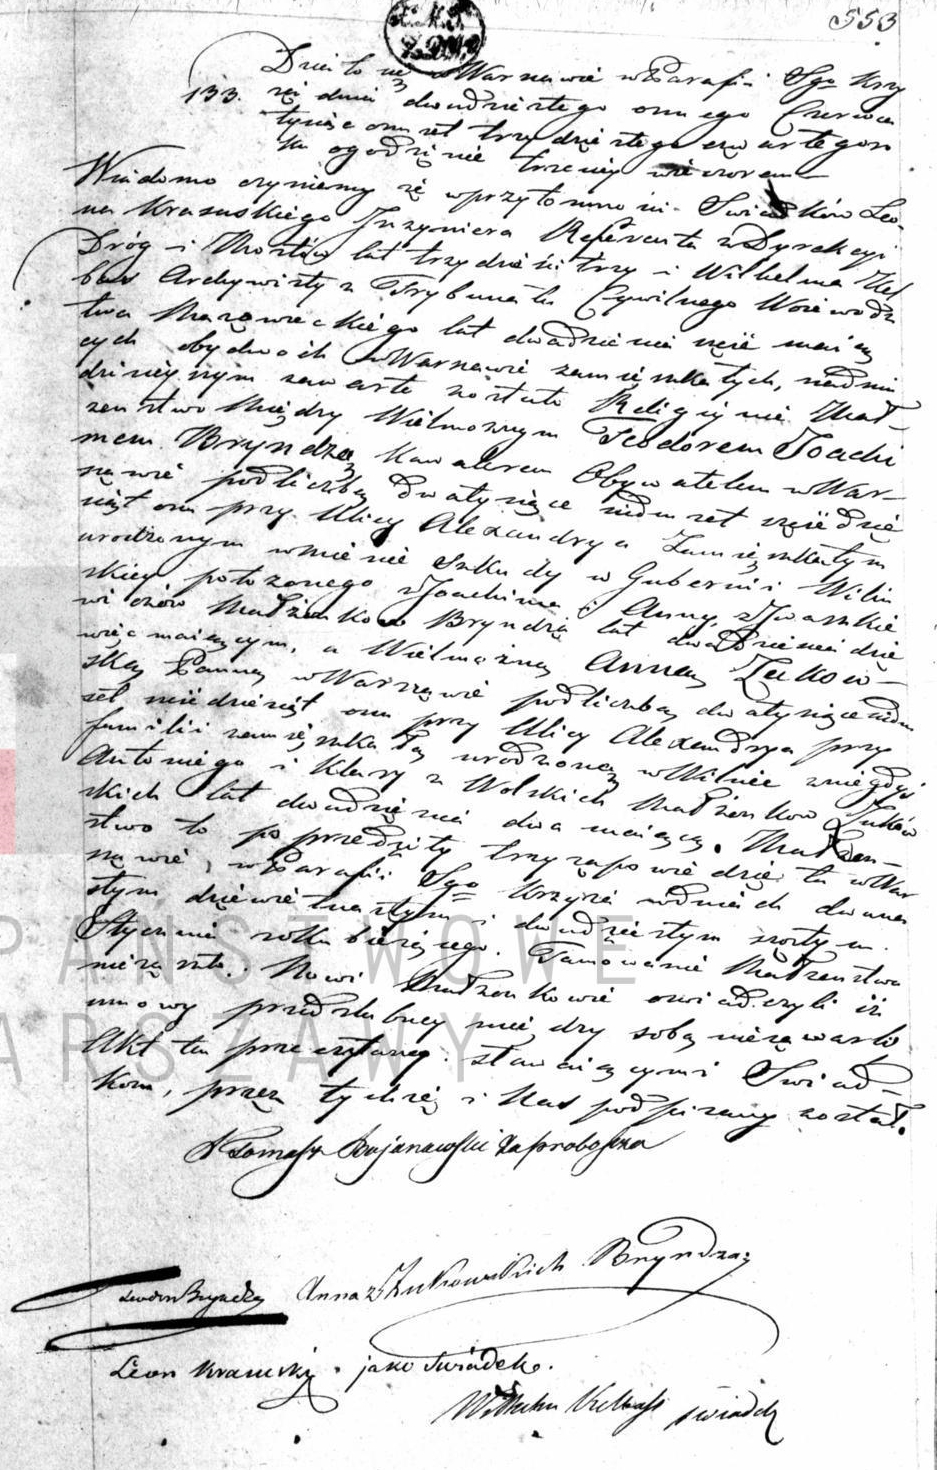 553
133.
Działo się w Warszawie w Parafii Sgo Krzy
ża dnia dwudziestego osmego Czerwca
tysiąc osmset trzydziestego czwartego ro
ku o godzinie trzeciey wieczorem
Wiadomo czyniemy że w przytomności Świadków Leo-
na Krasuskiego Inzyniera Referenta w Dyrekcyi
Dróg i Mostów lat trzydzieści trzy i Wilhelma Kel
bas Archywisty z Trybunału Cywilnego Wojewodz
twa Mazowieckiego lat dwadzieścia sześć maiąc
cych obydwoch w Warszawie zamieszkałych, na dniu
dzisieyszym zawarte zostało Religijne Mał-
żeństwo Między Wielmożnym Teodorem Joachi
mem Bryndzą Kawalerem Obywatelem w War-
szawie pod liczbą dwa tysiące siedmset sześćdzie
siąt osm przy Ulicy Alexandrya Zamieszkałym
urodzonym w mieście Szkudy w Gubernii Wilin
skiey położonego z Joachima i Anny z Iwaszkie
wiczów Małżonków Bryndzą lat dwadzieścia dzie
więć maiącym, a Wielmożną Anną Żukow-
ską Panną w Warszawie pod liczbą dwa tysiące siedm
set sześćdziesiąt osm przy Ulicy Alexandrya przy
familii zamieszkałą urodzoną w Wilnie z niegdyś
Antoniego i Klary z Wolskich Małżonków Żuków
skich lat dwadzieścia dwa maiącą. Małżeń-
stwo to poprzedziły trzy zapowiedzie tu w War
szawie, w Parafii Sgo Krzyża w dniach dwuna
stym dziewietnastym i dwudziestym szóstym
Stycznia roku bieżącego. Tamowanie Małżeństwa
nie zaszło. Nowi Małżonkowie oswiadczyli iż
umowy przedslubney między sobą nie zawarli
Akt ten przeczytany stawaiącymi Świad-
kom, przez tychże i Nas podpisany został.
X Tomasz Bojanowski Za proboszcza
Teodor Bryndza Anna z Żukowskich Bryndza
Leon Krasuski jako Swiadek.
Wilhelm Kelbass świadek
PAŃSTWOWE
WARSZAWY